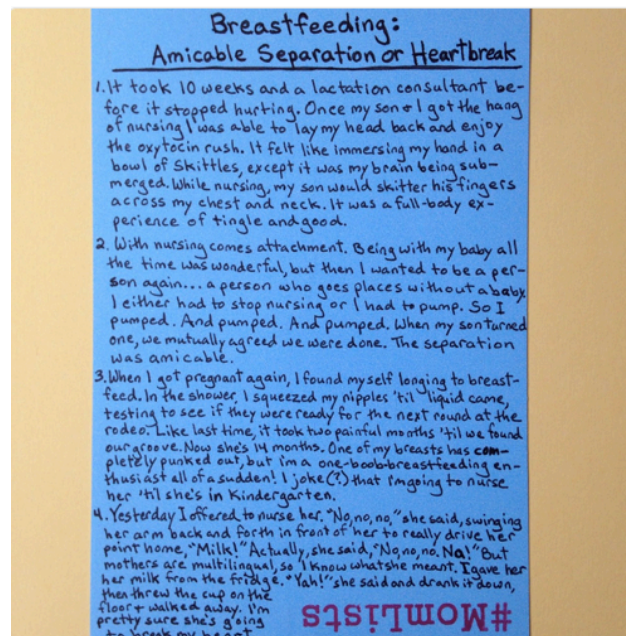 Breastfeeding:
Amicable Separation or Heartbreak
1. It took 10 weeks and a lactation consultant be-
fore it stopped hurting. Once my son + I got the hang
of nursing I was able to lay my head back and enjoy
the oxytocin rush. It felt like immersing my hand in a
bowl of Skittles, except it was my brain being sub-
merged. While nursing, my son would skitter his fingers
across my chest and neck. It was a full-body ex-
perience of tingle and good.
2. With nursing comes attachment. Being with my baby all
the time was wonderful, but then I wanted to be a per-
son again... a person who goes places without a baby.
I either had to stop nursing or I had to pump. So I
pumped. And pumped. And pumped. When my son turned
one, we mutually agreed we were done. The separation
was amicable.
3. When I got pregnant again, I found myself longing to breast-
feed. In the shower, I squeezed my nipples 'til liquid came,
testing to see if they were ready for the next round at the
rodeo. Like last time, it took two painful months 'til we found
our groove. Now she's 14 months. One of my breasts has com-
pletely punked out, but i'm a one-boob-breastfeeding en-
thusiast all of a sudden! I joke(?) that i'm going to nurse
her 'til she's in Kindergarten.
4. Yesterday I offered to nurse her. "No, no, no," she said, swinging
her arm back and forth in front of her to really drive her
point home, "Milk!" Actually, she said, "No, no, no. Na!" But
mothers are multilingual, so I know what she meant. I gave her
her milk from the fridge. "Yah!" she said and drank it down,
then threw the cup on the
floor + walked away. I'm
pretty sure she's going
to break my heart
#MomLists